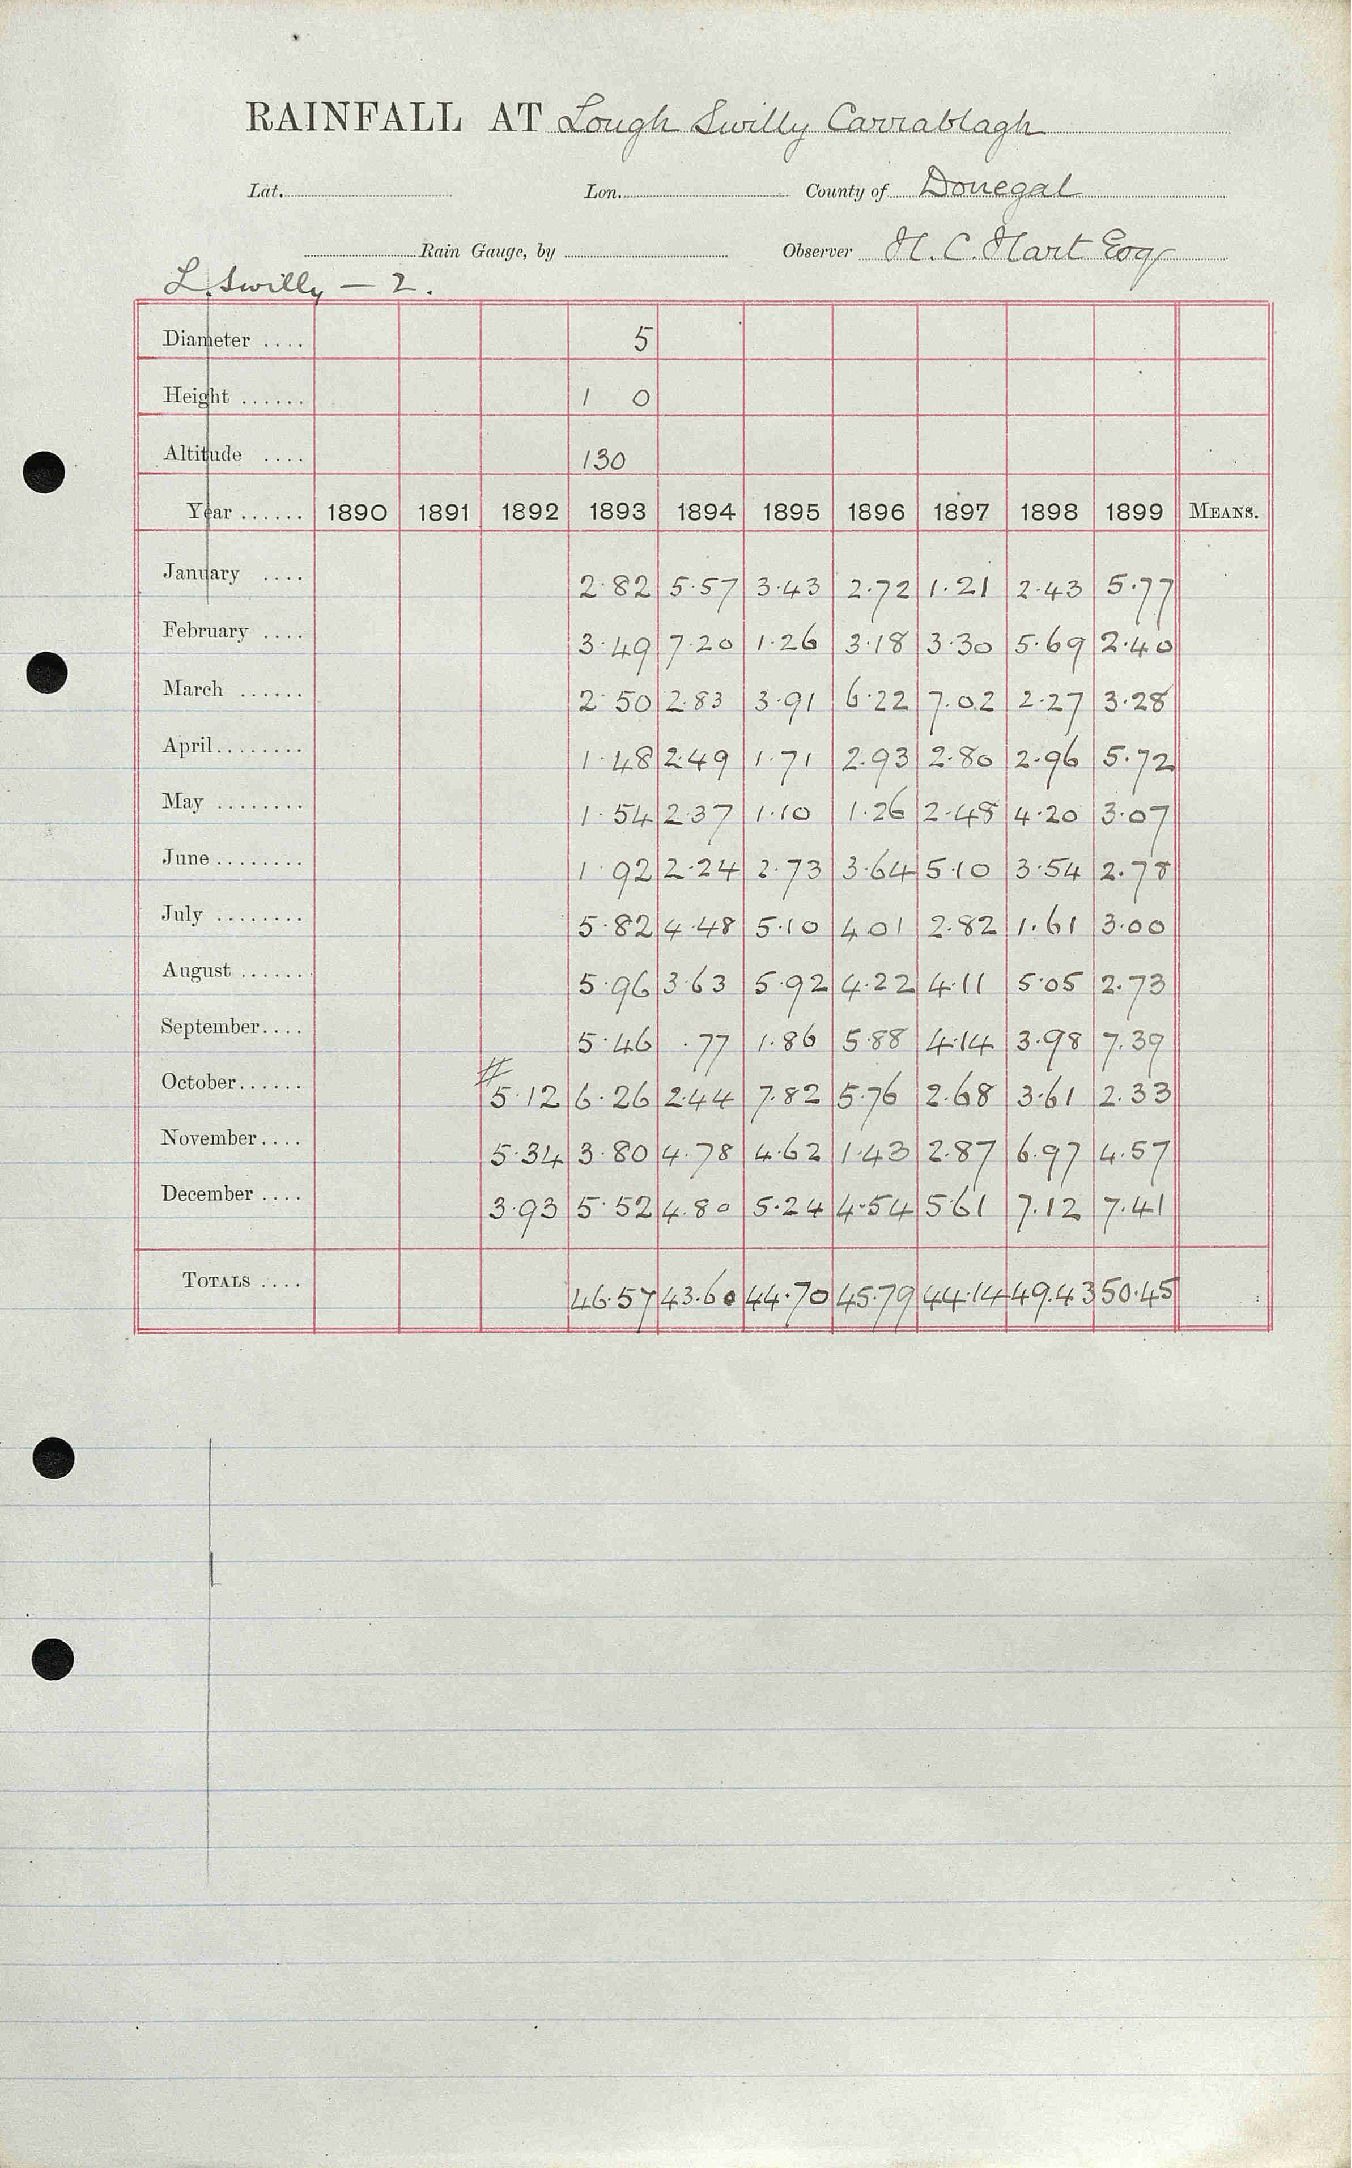 RAINFALL AT Lough Swilly Carrablagh
Lat. Lon. County of Donegal
Rain Gauge, by Observer H. C. Hart Esq
L. Swilly — 2.
Diameter .... 5
Height ...... 1 0
Altitude .... 130
Year ...... 1890 1891 1892 1893 1894 1895 1896 1897 1898 1899 MEANS.
January .... 2.82 5.57 3.43 2.72 1.21 2.43 5.77
February .... 3.49 7.20 1.26 3.18 3.30 5.69 2.40
March ...... 2.50 2.83 3.91 6.22 7.02 2.27 3.28
April........ 1.48 2.49 1.71 2.93 2.80 2.96 5.72
May ........ 1.54 2.37 1.10 1.26 2.48 4.20 3.07
June........ 1.92 2.24 2.73 3.64 5.10 3.54 2.78
July ........ 5.82 4.48 5.10 4.01 2.82 1.61 3.00
August ....... 5.96 3.63 5.92 4.22 4.11 5.05 2.73
September.... 5.46 .77 1.86 5.88 4.14 3.98 7.39
October...... #5.12 6.26 2.44 7.82 5.76 2.68 3.61 2.33
November.... 5.34 3.80 4.78 4.62 1.43 2.87 6.97 4.57
December .... 3.93 5.52 4.80 5.24 4.54 5.61 7.12 7.41
TOTALS .... 46.57 43.60 44.70 45.79 44.14 49.43 50.45